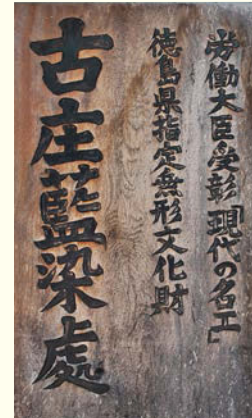 労働大臣受彰「現代の名工」
徳島県指定無形文化財
古庄藍染處